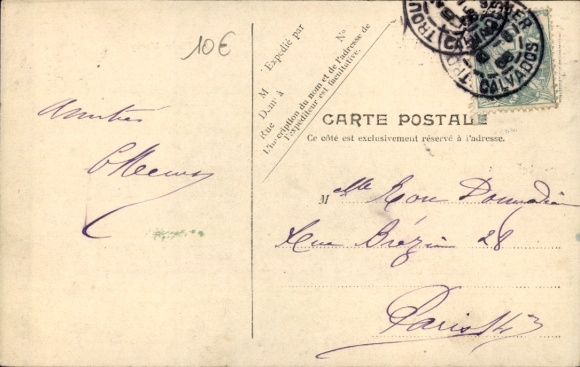 10€
Expédié par
M
Demt à
Rue
No
L'inscription du nom et de l'adresse de
l'expéditeur est facultative.
CALVADOS
CARTE POSTALE
Ce côté est exclusivement réservé à l'adresse.
Amitiés
Mlle
Rue Brézin 28
Paris 14